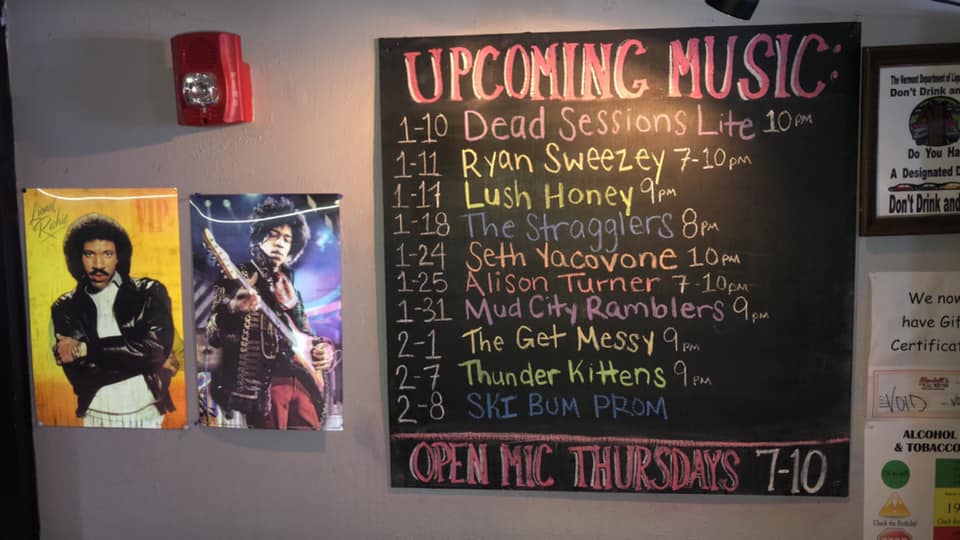 UPCOMING MUSIC:
1-10 Dead Sessions Lite 10pm
1-11 Ryan Sweezey 7-10pm
1-17 Lush Honey 9pm
1-18 The Stragglers 8pm
1-24 Seth Yacovone 10pm
1-25 Alison Turner 7-10pm
1-31 Mud City Ramblers 9pm
2-1 The Get Messy 9pm
2-7 Thunder Kittens 9pm
2-8 SKI BUM PROM
OPEN MIC THURSDAYS 7-10
Lionel
Richie
VIP
The Vermont Department of
Don't Drink
Do You
A Designated
Don't Drink and
We now
have
Certifica
VOID
ALCOHOL
& TOBACCO
Check the Birthday!
19